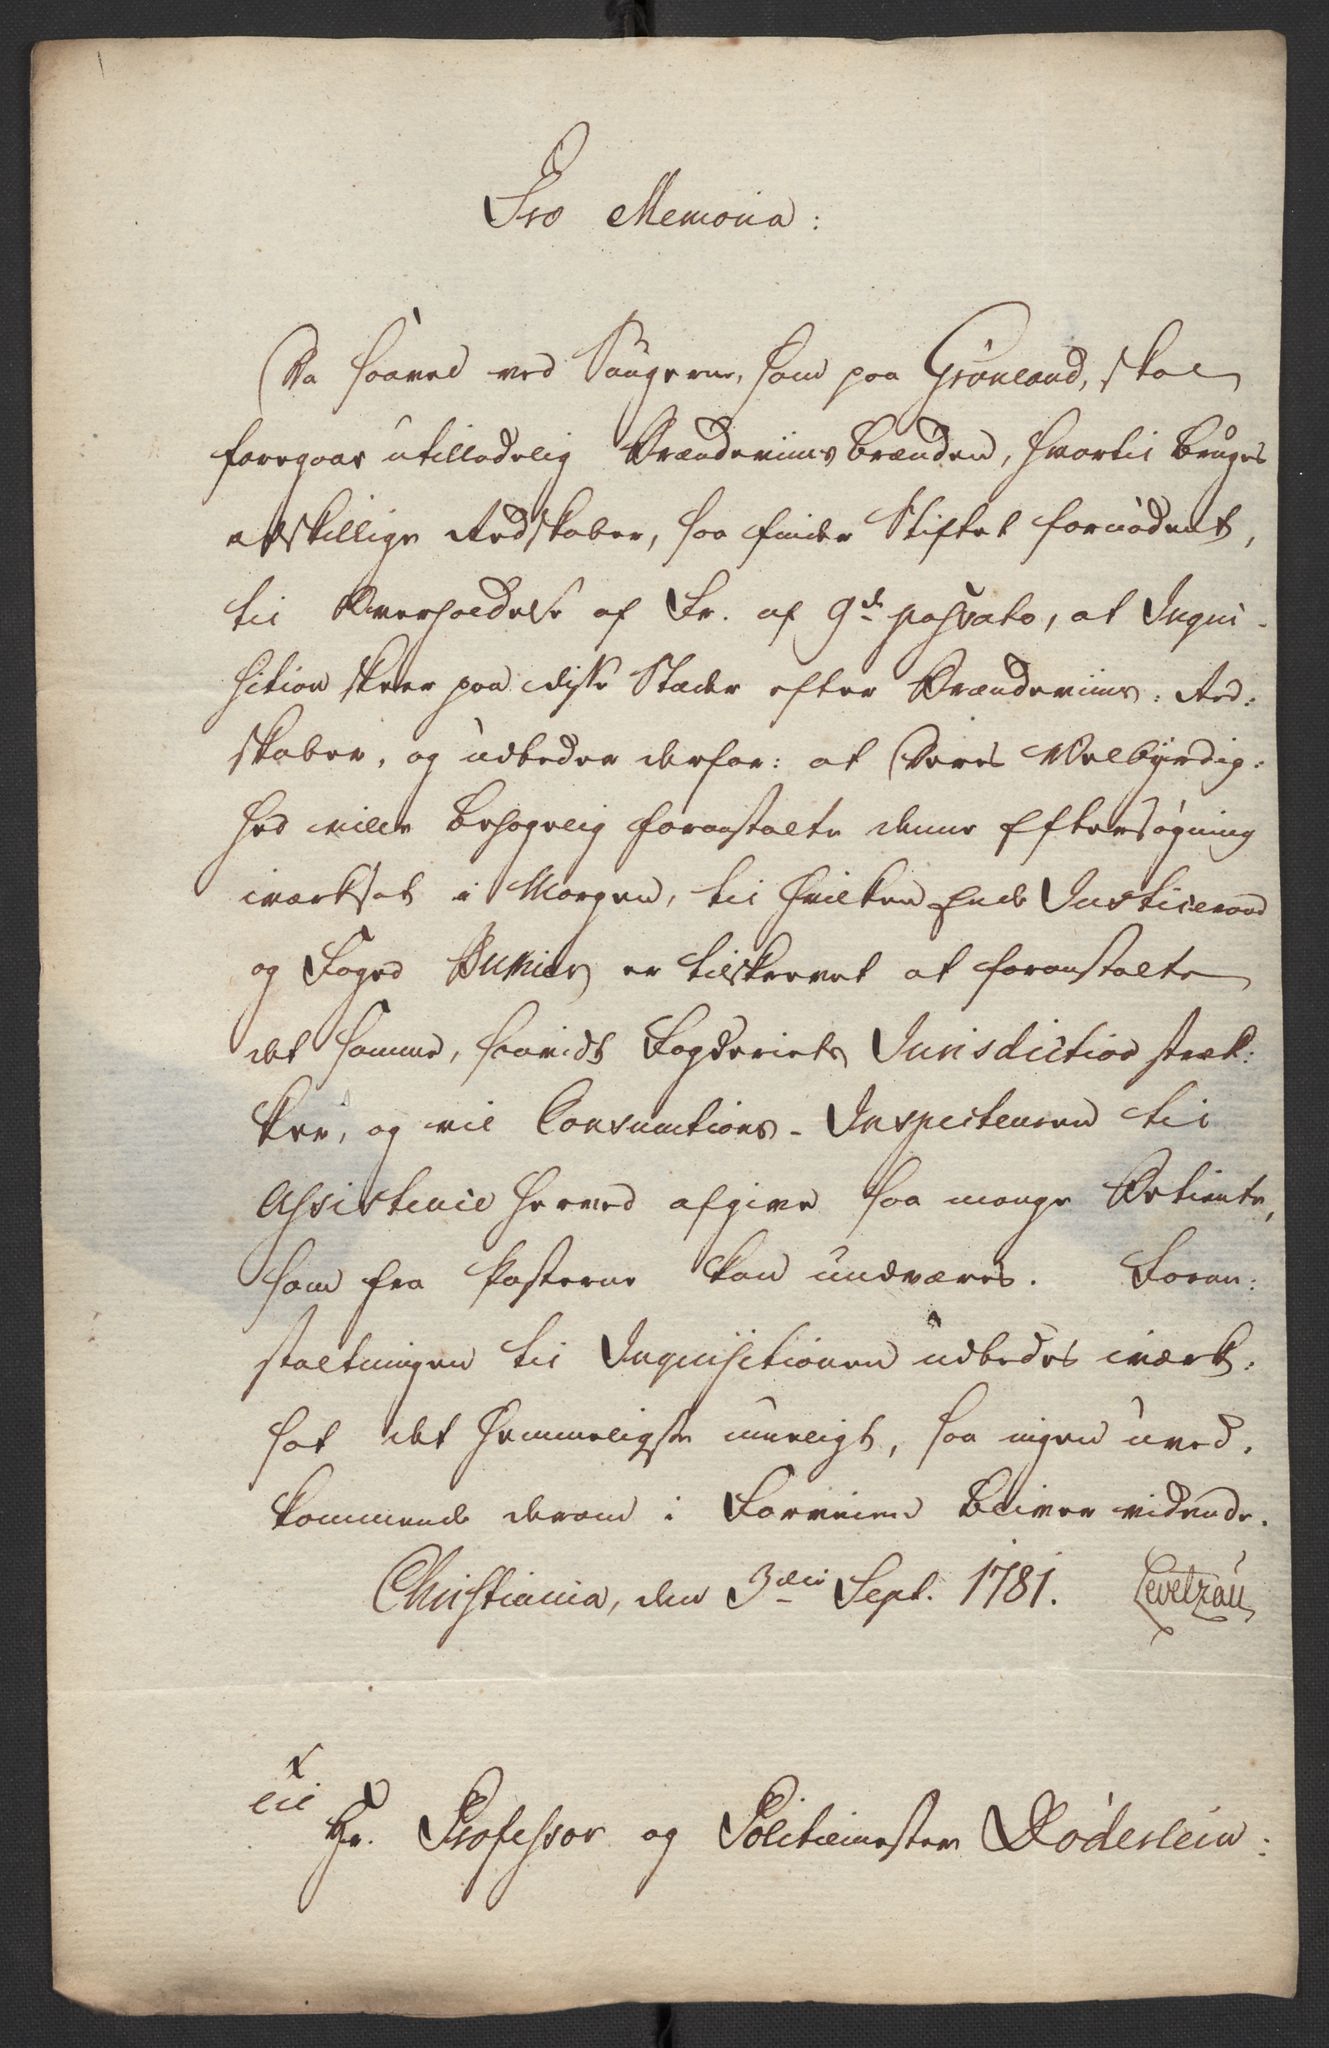 Pro Memoria:
Da saavel ved Saugerne, som paa Grönland, skal
foregaae utilladelig Brændeviins Brænden, hvortil bruges
adskillige Redskaber, saa finder Stiftet fornödent,
til Overholdelse af Fr. af 9de passato, at Inqvi-
sition skeer paa disse Stæder efter Brændeviins-Red-
skaber, og udbeder derfor: at Deres Velbyrdig-
hed ville behagelig foranstalte denne Eftersögning
iværksat i Morgen, til hvilken Ende Justiceraad
og Foged er tilskrevet at foranstalte
det samme, saavidt Fogderiets Jurisdiction stræk-
ker, og vil Consumtions-Inspecteuren til
Assistence herved afgive saa mange Betiente,
som fra Posterne kan undværes. Foran-
staltningen til Inqvisitionen udbedes iværk-
sat det hemmeligste mueligt, saa ingen uved-
kommende derom i Forveien bliver vidende.
Christiania, den 3die Sept. 1781. Levetzau
til
Hr. Professor og Politiemester Döderlein: